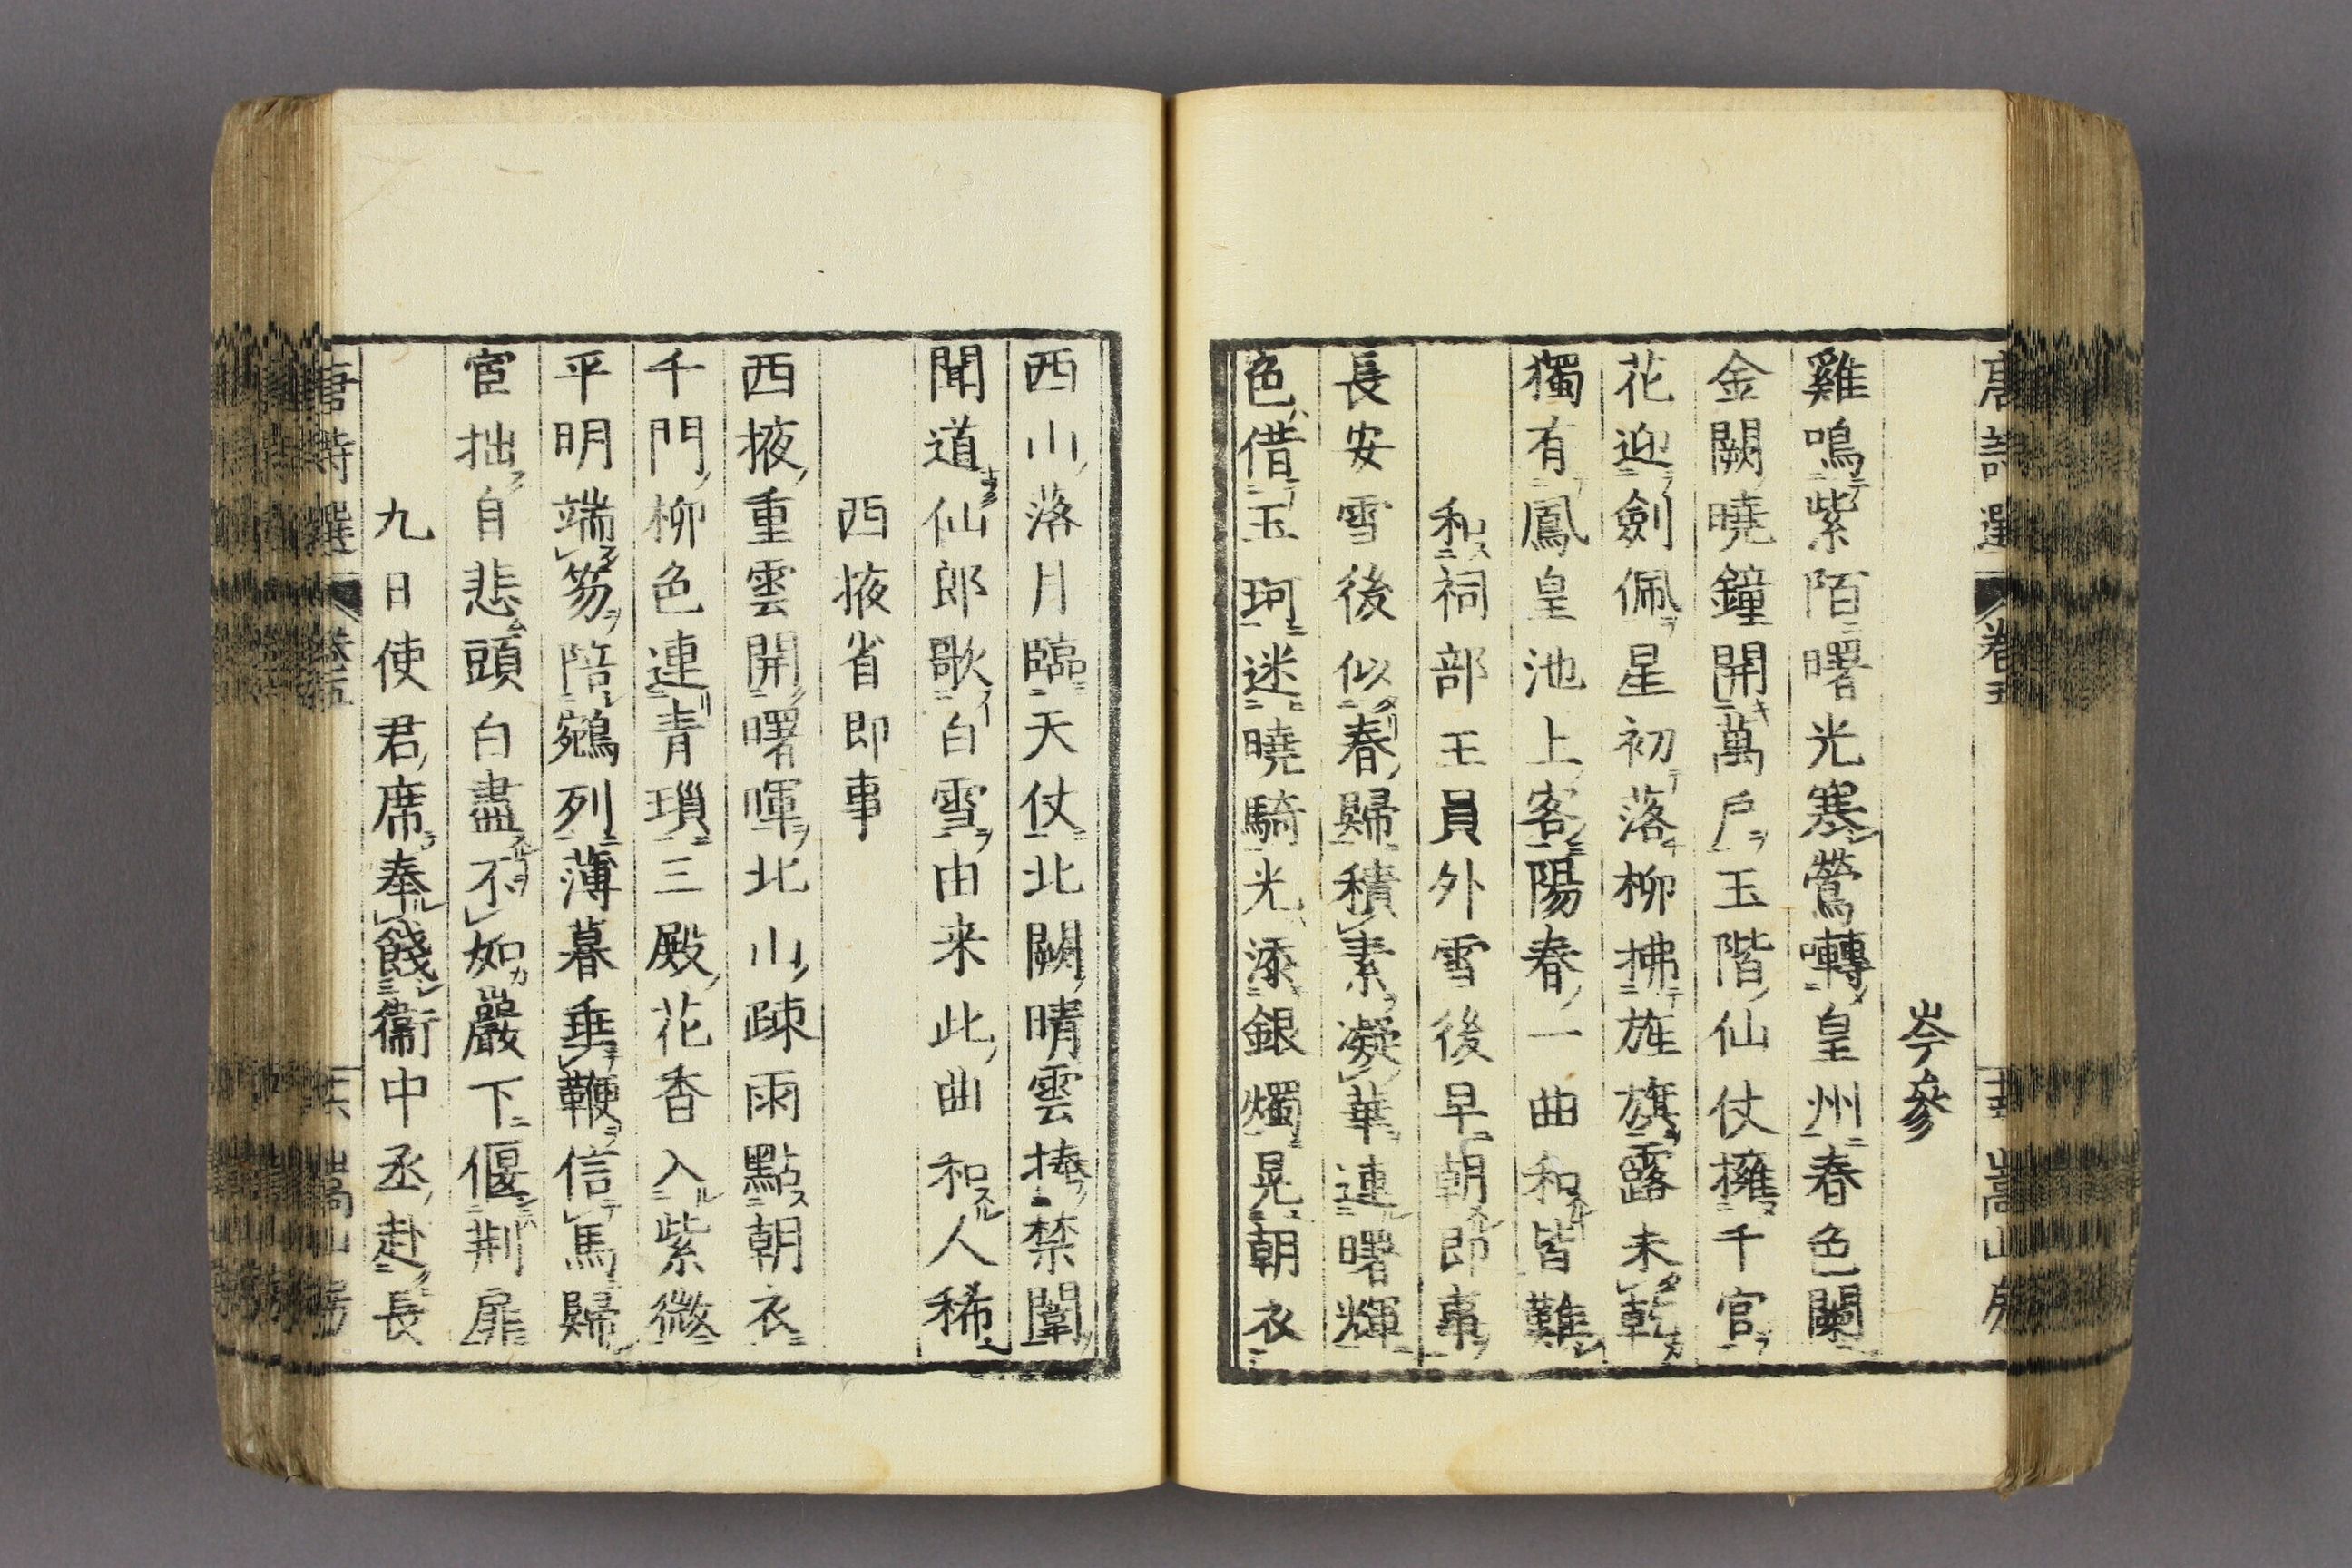 唐詩選 卷五 十五 嵩山房
岑參
雞鳴紫陌曙光寒鶯囀皇州春色闌
金闕曉鐘開萬戶玉階仙仗擁千官
花迎劍佩星初落柳拂旌旗露未乾
獨有鳳皇池上客陽春一曲和皆難
和祠部王員外雪後早朝即事
長安雪後似春歸積素凝華連曙輝
色借玉珂迷曉騎光添銀燭晃朝衣
西山落月臨天仗北闕晴雲捧禁闈
聞道仙郎歌白雪由来此曲和人稀
西掖省即事
西掖重雲開曙暉北山疎雨點朝衣
千門柳色連青瑣三殿花香入紫微
平明端笏陪鵷列薄暮垂鞭信馬歸
宦拙自悲頭白盡不如巖下偃荆扉
九日使君席奉餞衞中丞赴長
唐詩選 卷五 十六 嵩山房